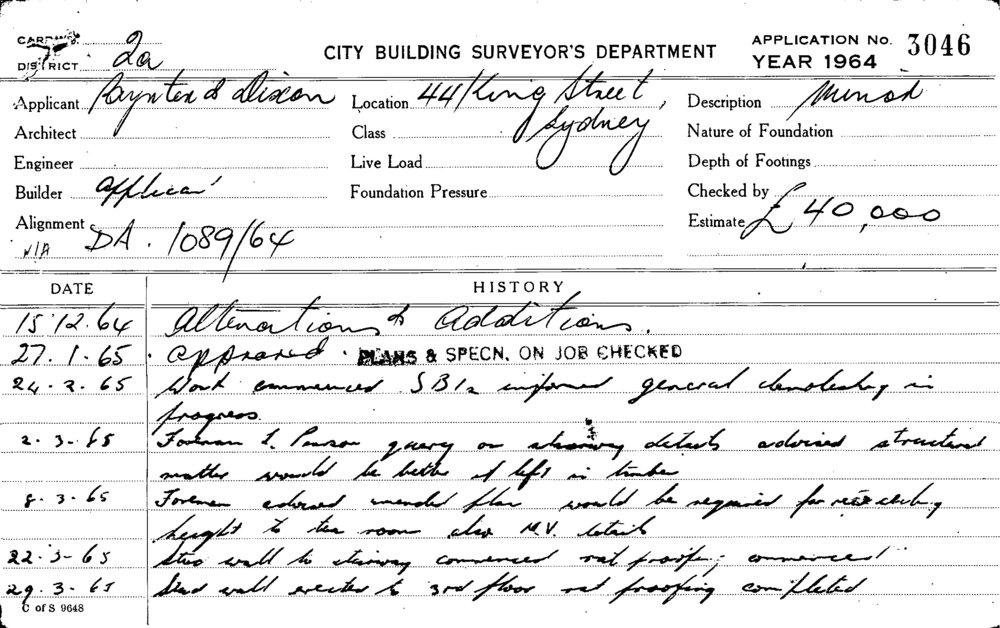 CARD No.
DISTRICT 2a
CITY BUILDING SURVEYOR'S DEPARTMENT
APPLICATION No. 3046
YEAR 1964
Applicant Paynter & Dixon
Location 44 King Street,
Sydney
Description Minor
Architect
Class
Nature of Foundation
Engineer
Live Load
Depth of Footings
Builder Applicant
Foundation Pressure
Checked by
Alignment N/A
Estimate £40,000
DA. 1089/64
DATE HISTORY
15.12.64 Alterations & Additions.
27.1.65 Approved. PLANS & SPECN. ON JOB CHECKED
24.2.65 Work commenced informed general demolishing in
progress.
2.3.65 Foreman query on stairway details advised structural
matter would be better if left in timber
8.3.65 Foreman advised amended plan would be required for ceiling
height to tea room also M.V. details
22.3.65 Stud wall to stairway commenced rat proofing commenced
29.3.65 Stud wall erected to 3rd floor rat proofing completed
C of S 9648